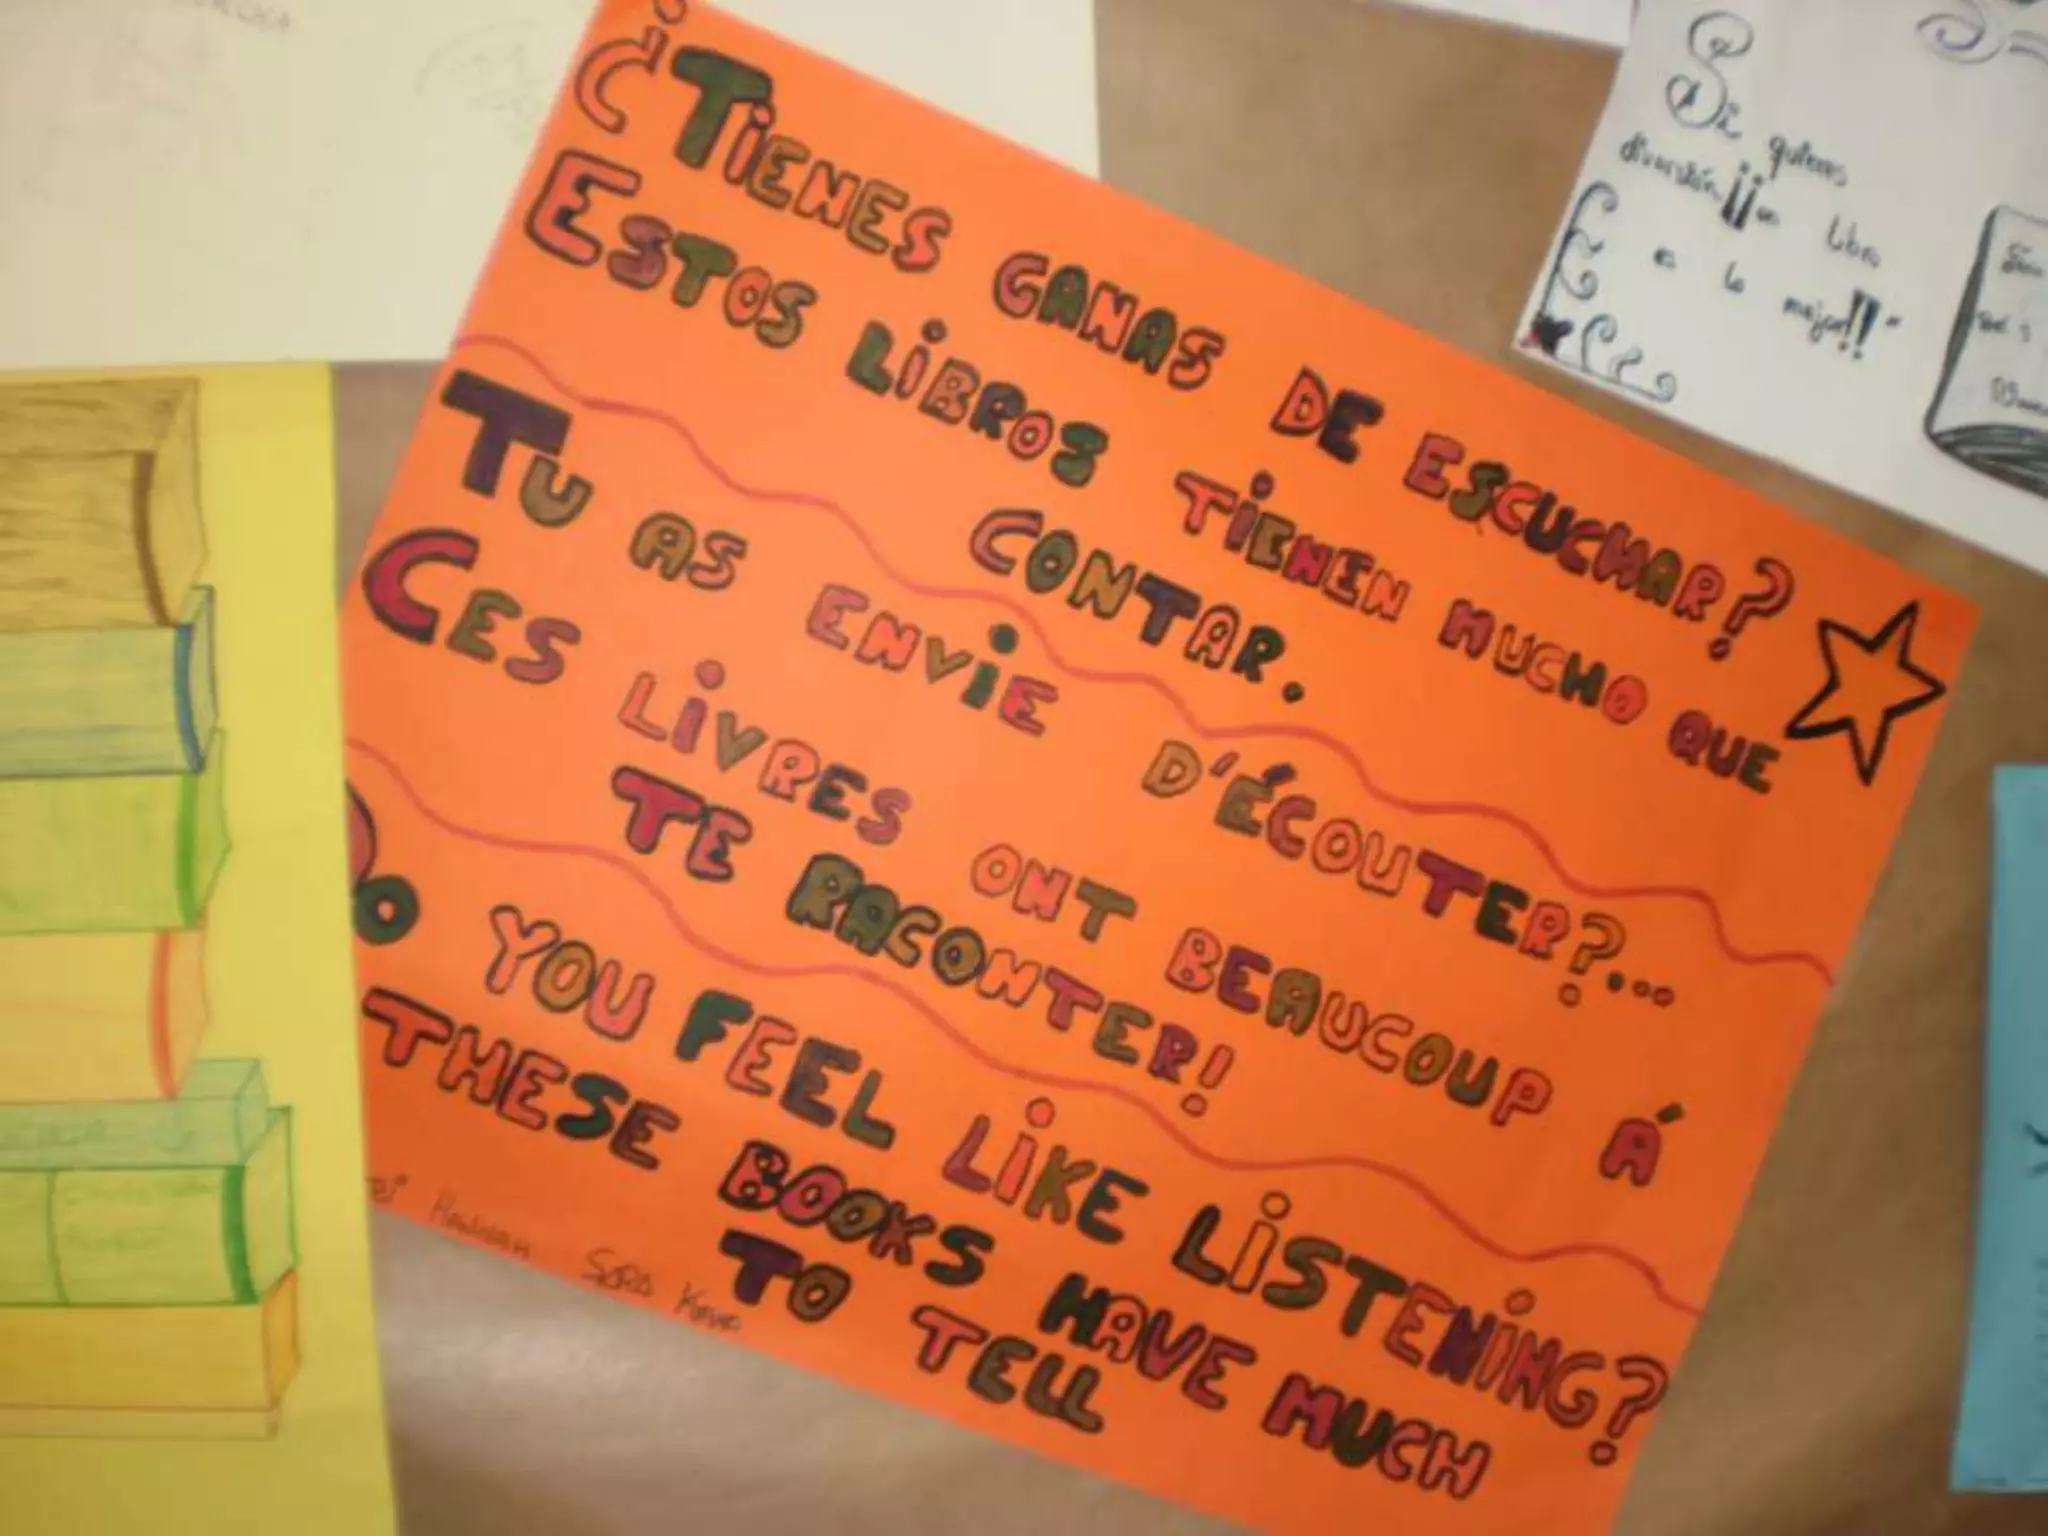 ¿Tienes ganas de escuchar?
Estos libros tienen mucho que
contar.
Tu as envie d'écouter?...
Ces livres ont beaucoup á
te raconter!
Do you feel like listening?
These books have much
to tell
Sara
Si quieres
diversión ¡¡un libro
es lo mejor!!"